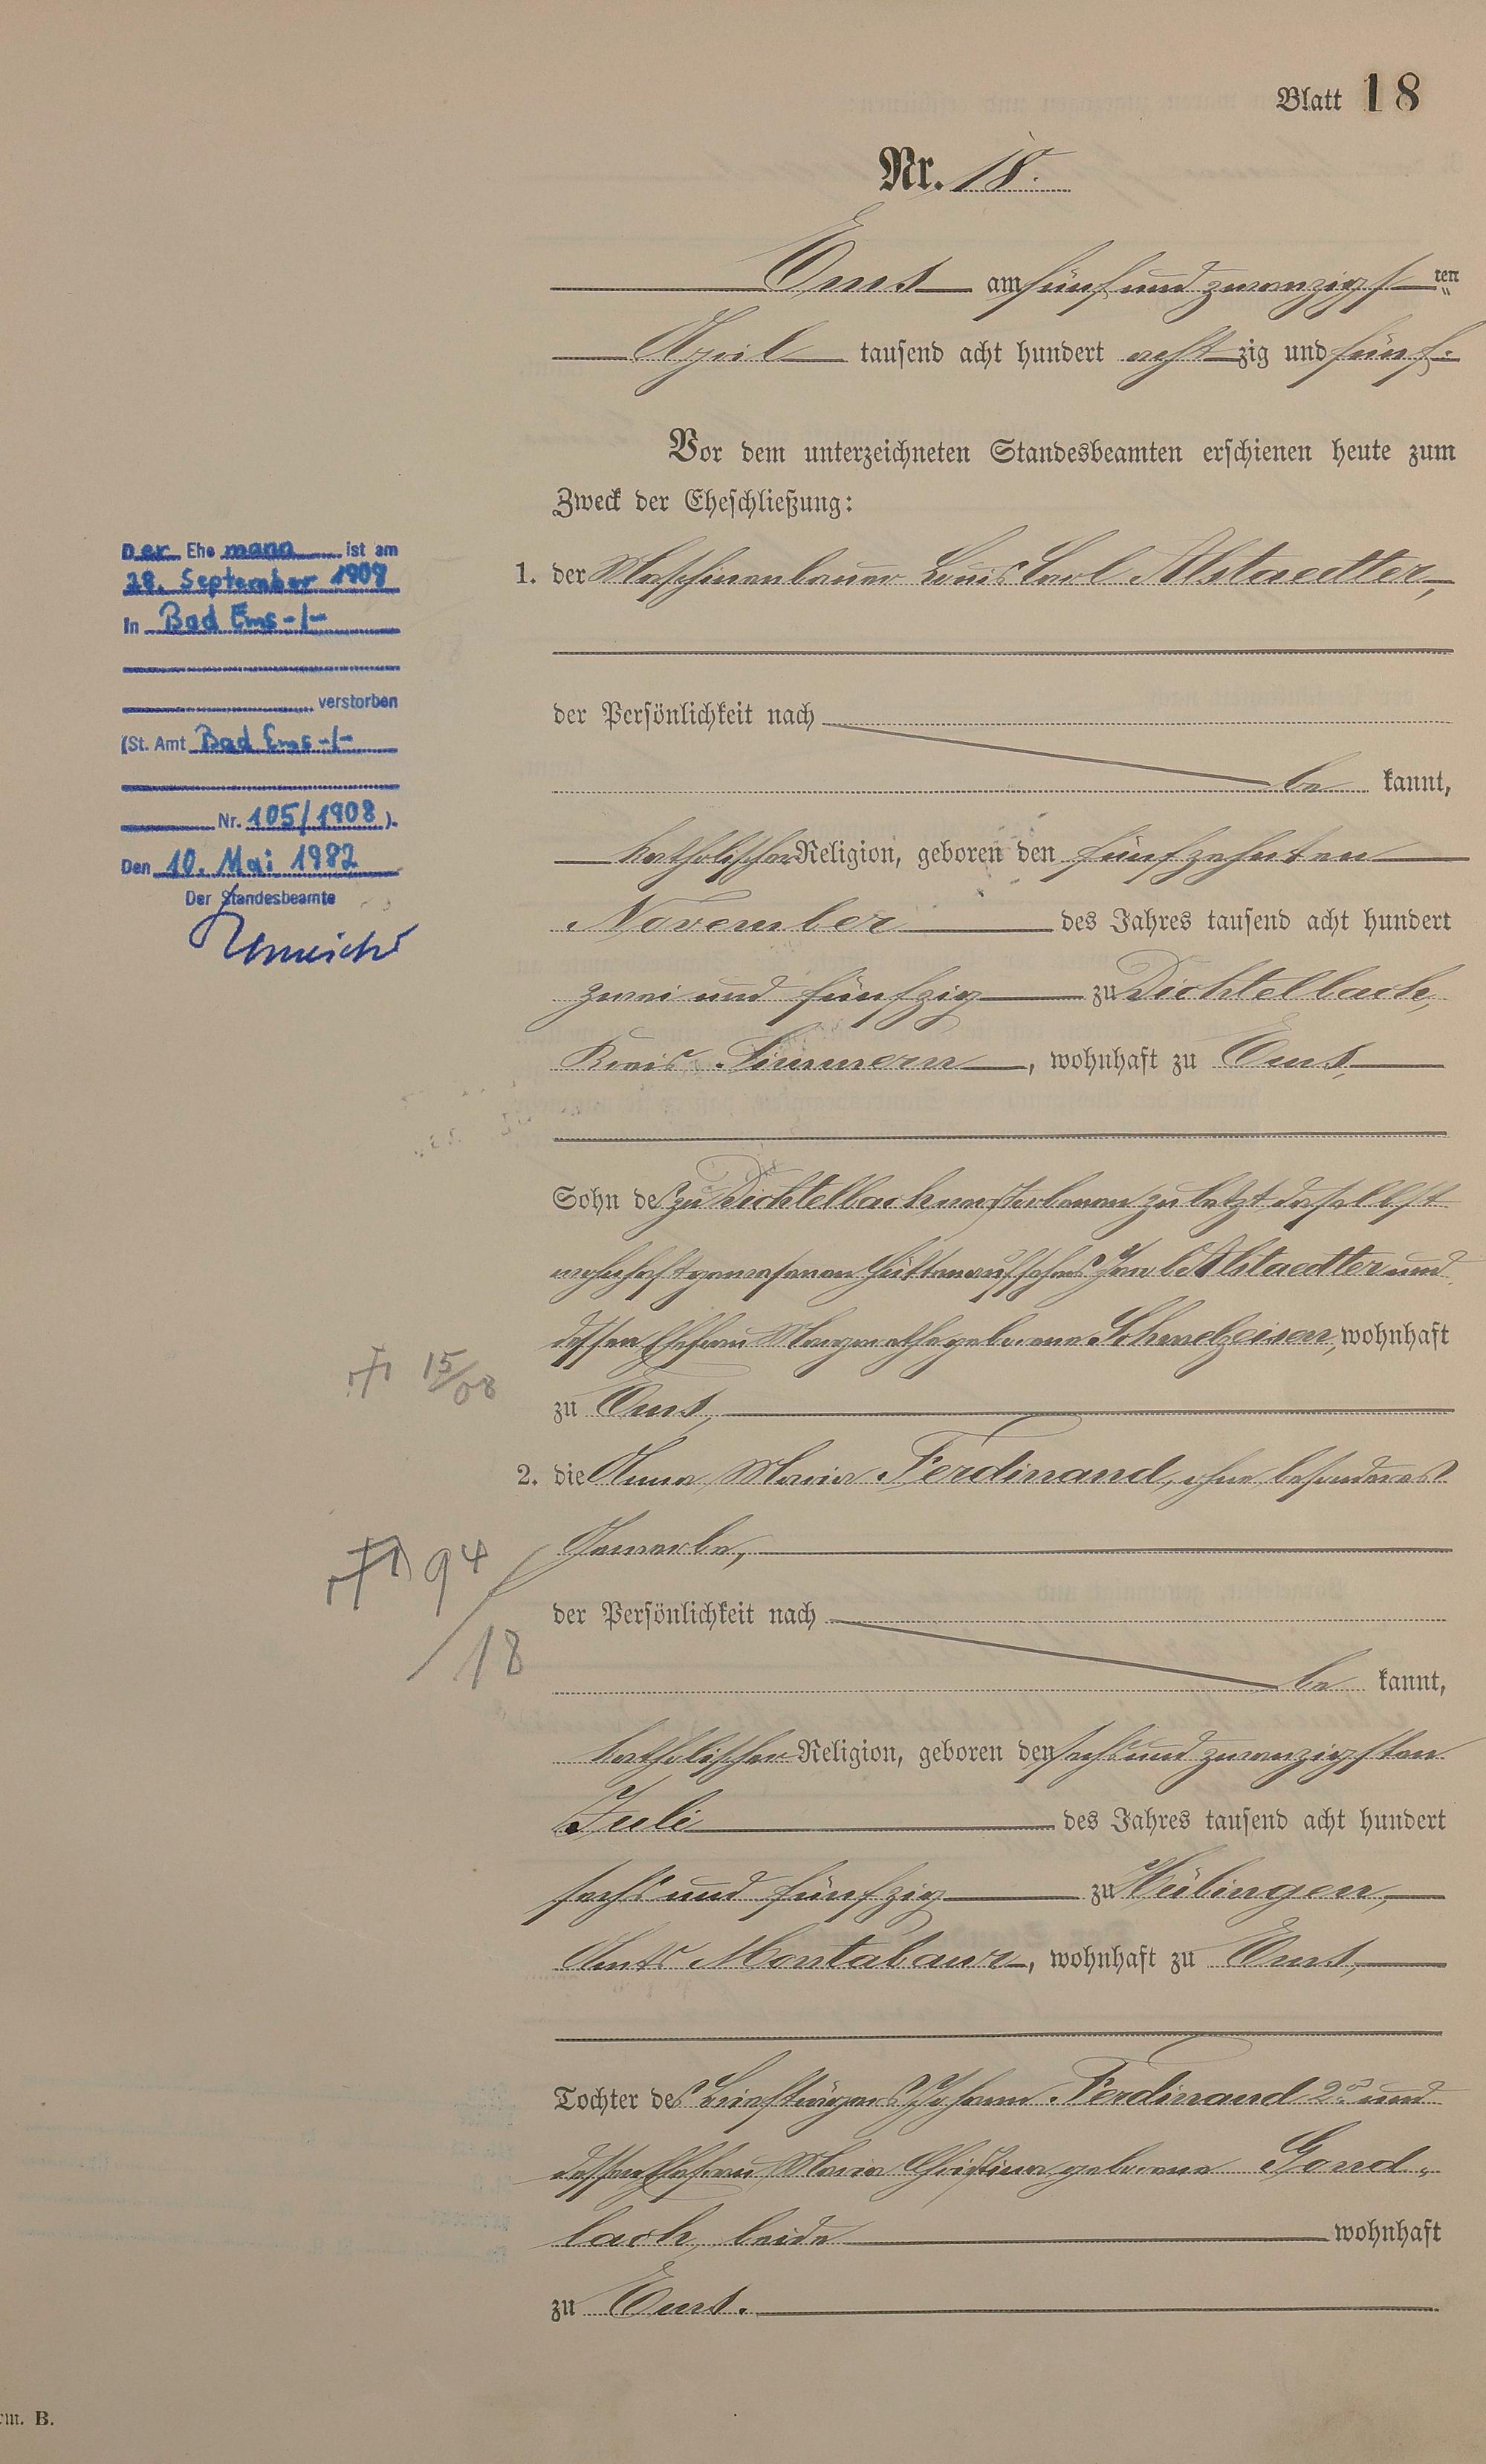 Blatt 18
Nr. 18.
Ems am fünf und zwanzigsten
April tausend acht hundert achtzig und fünf.
Vor dem unterzeichneten Standesbeamten erschienen heute zum
Zweck der Eheschließung:
1. der Maschinenbauer Louis Carl Alstaedter,
der Persönlichkeit nach
be kannt,
katholischer Religion, geboren den fünfzehnten
November des Jahres tausend acht hundert
zwei und fünfzig zu Dichtelbach,
Kreis Simmern, wohnhaft zu Ems,
Sohn des zu Dichtelbach verstorbenen zuletzt daselbst
wohnhaft gewesenen Hüttenaufsehers Alstaedter und
dessen Ehefrau Margarethe geborene Schmelzeisen, wohnhaft
zu Ems,
2. die Anna Maria Ferdinand, ohne besonderes
Gewerbe,
der Persönlichkeit nach
be kannt,
katholischer Religion, geboren den sechs und zwanzigsten
Juli des Jahres tausend acht hundert
sechs und fünfzig zu Hübingen,
Amts Montabaur, wohnhaft zu Ems,
Tochter des Johann Ferdinand 2r und
dessen Ehefrau Maria Christina geborene Gond-
lach, beide wohnhaft
zu Ems.
Der Ehe mann ist am
28. September 1908
In Bad Ems -/-
verstorben
(St. Amt Bad Ems -/-
Nr. 105/1908 ).
Den 10. Mai 1982
Der Standesbeamte
15/08
94/18
rm. B.